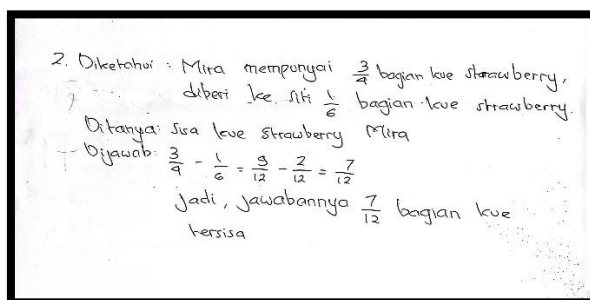 2. Diketahui : Mira mempunyai 3/4 bagian kue strawberry,
diberi ke siti 1/6 bagian kue strawberry.
Ditanya: Sisa kue strawberry Mira
Dijawab: 3/4 - 1/6 = 9/12 - 2/12 = 7/12
jadi, jawabannya 7/12 bagian kue
tersisa